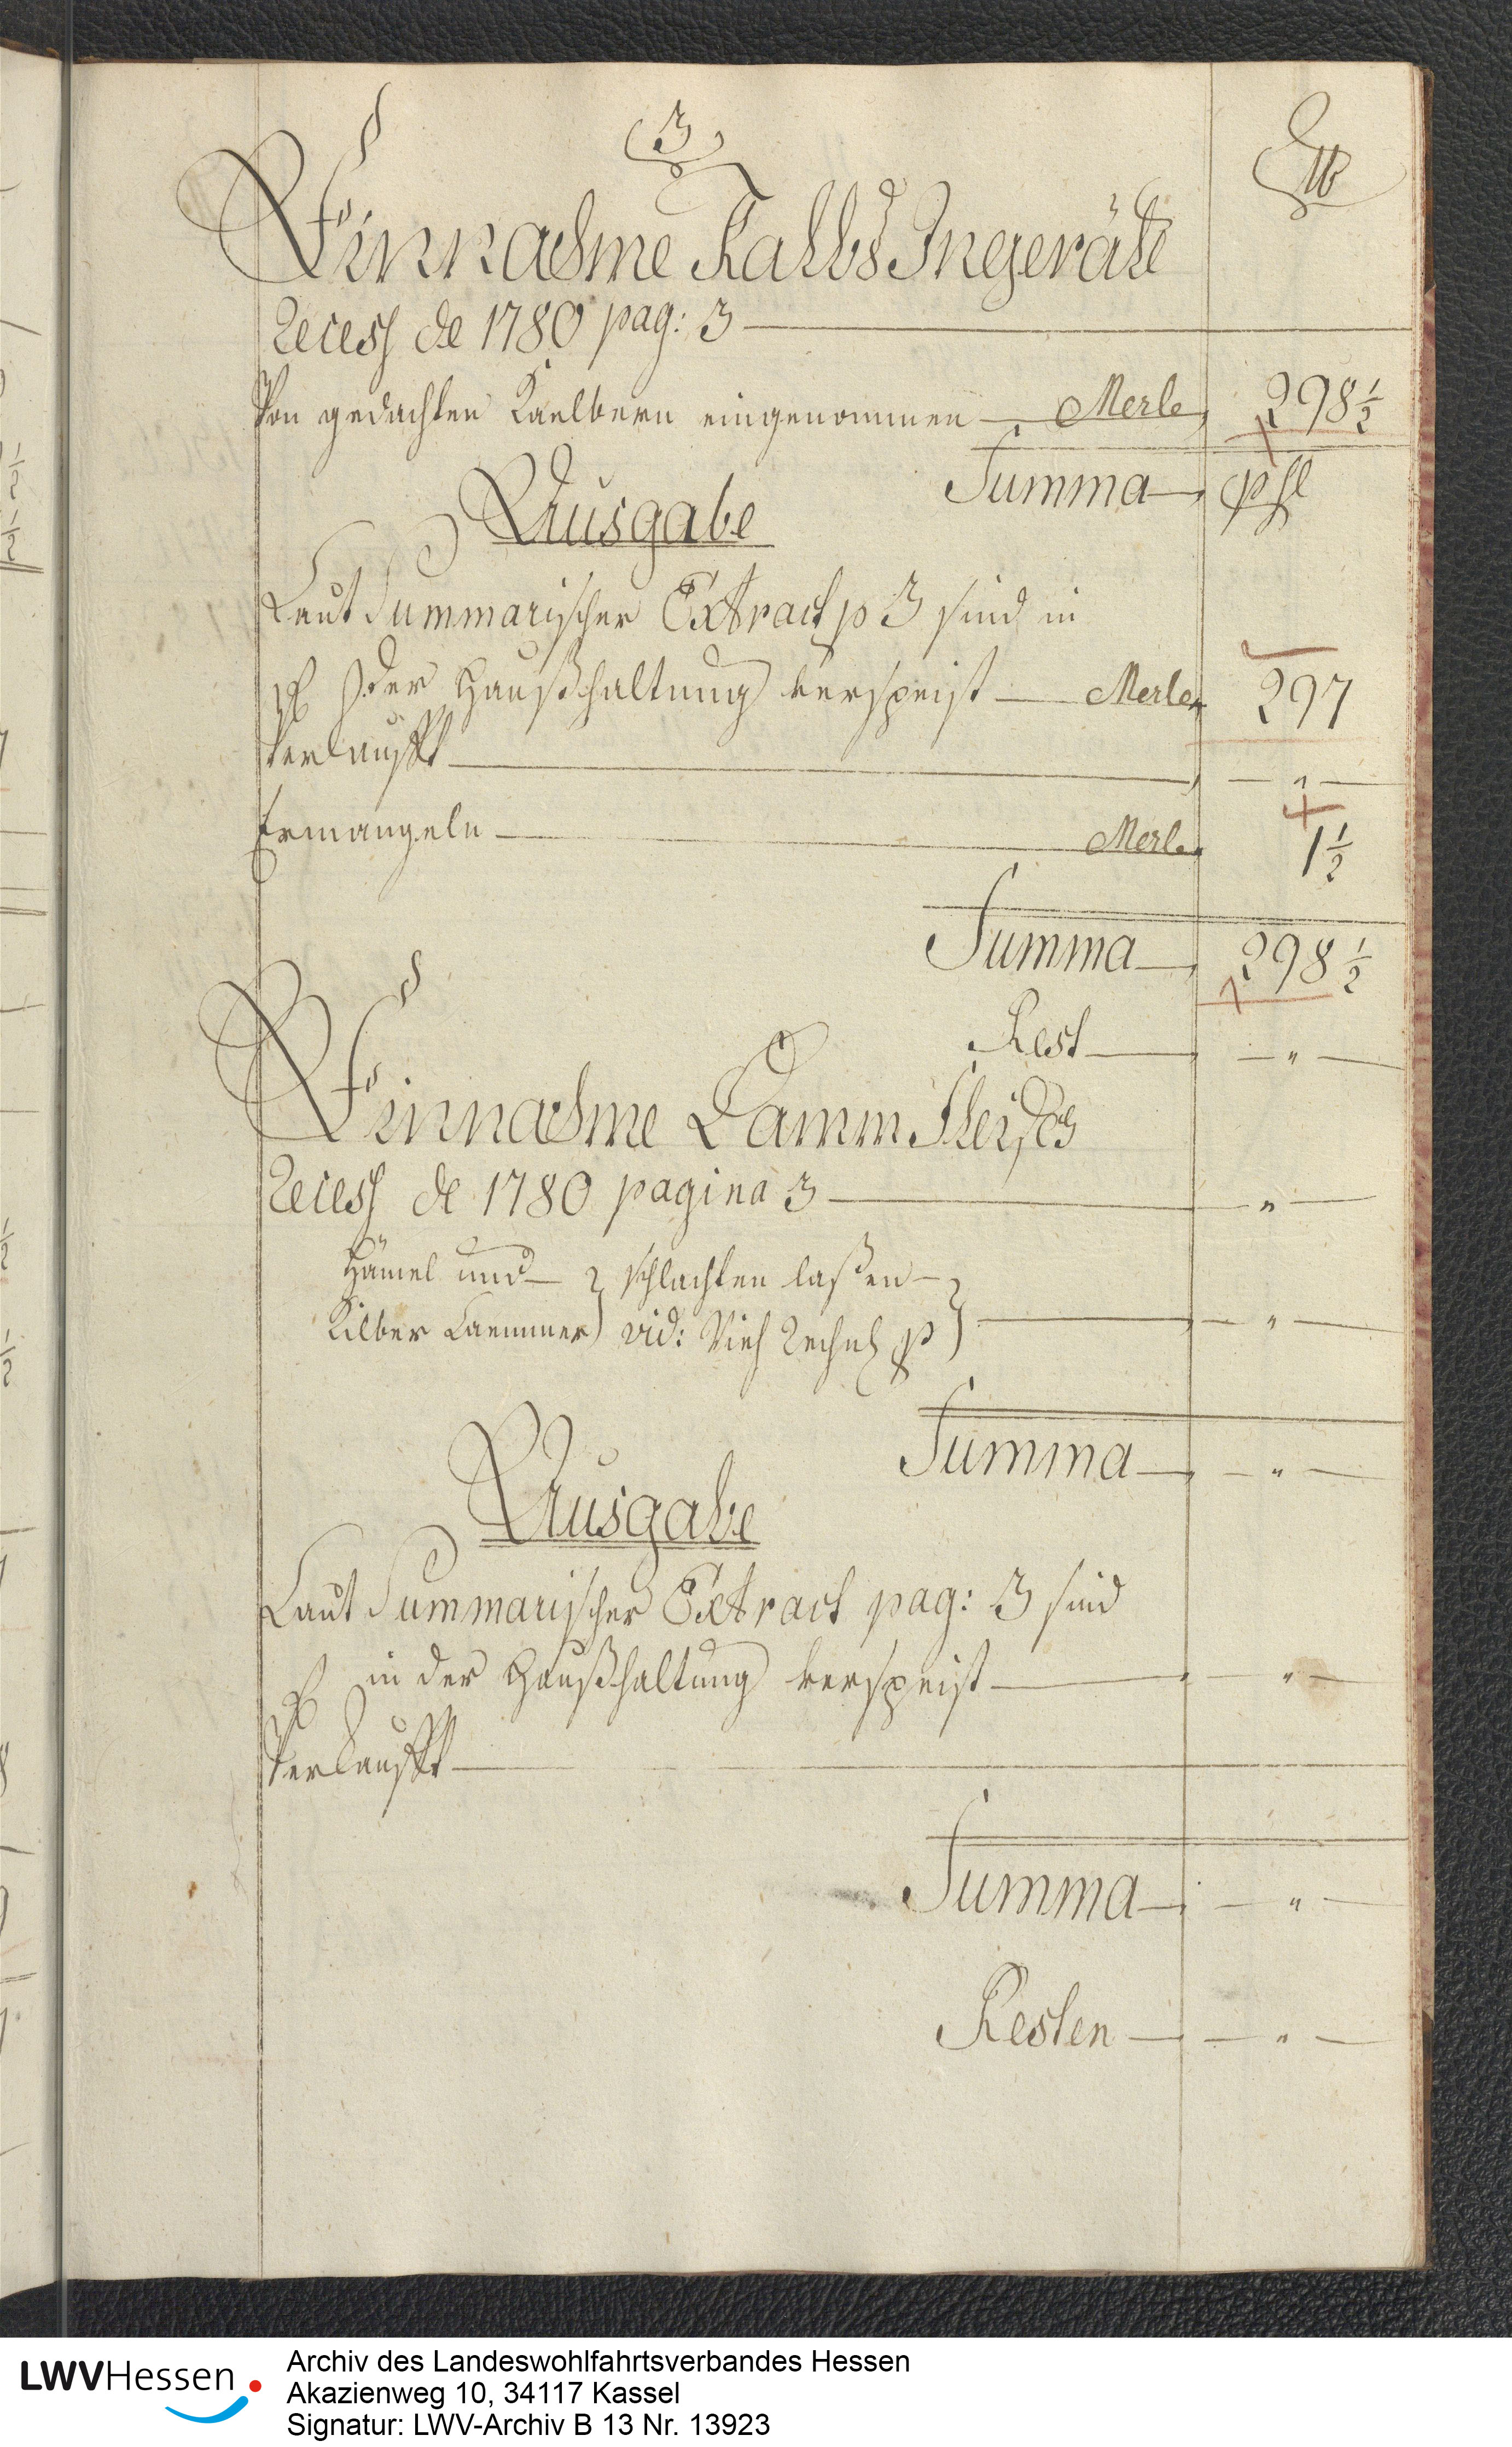 3
lb
Einnahme Kalbs Ingeräte
Recess de 1780 pag: 3
Von gedachten Kaelbern eingenommen — Merle 298 1/2
Summa — p se
Ausgabe
Laut Summarischer Extract p 3 sind in
der Haußhaltung verspeist — Merle 297
Verkaufft — " —
Ermangeln — Merle 1 1/2
Summa — 298 1/2
Rest — " —
Einnahme Lamm Fleisch
Recess de 1780 pagina 3 — " —
Hämel und — schlachten laßen —
Kilber Laemmer vid: Vieh Rechn p — " —
Summa — " —
Ausgabe
Laut Summarischer Extract pag: 3 sind
in der Haußhaltung verspeist — " —
Verkaufft —
Summa — " —
Resten — " —
LWVHessen
Archiv des Landeswohlfahrtsverbandes Hessen
Akazienweg 10, 34117 Kassel
Signatur: LWV-Archiv B 13 Nr. 13923